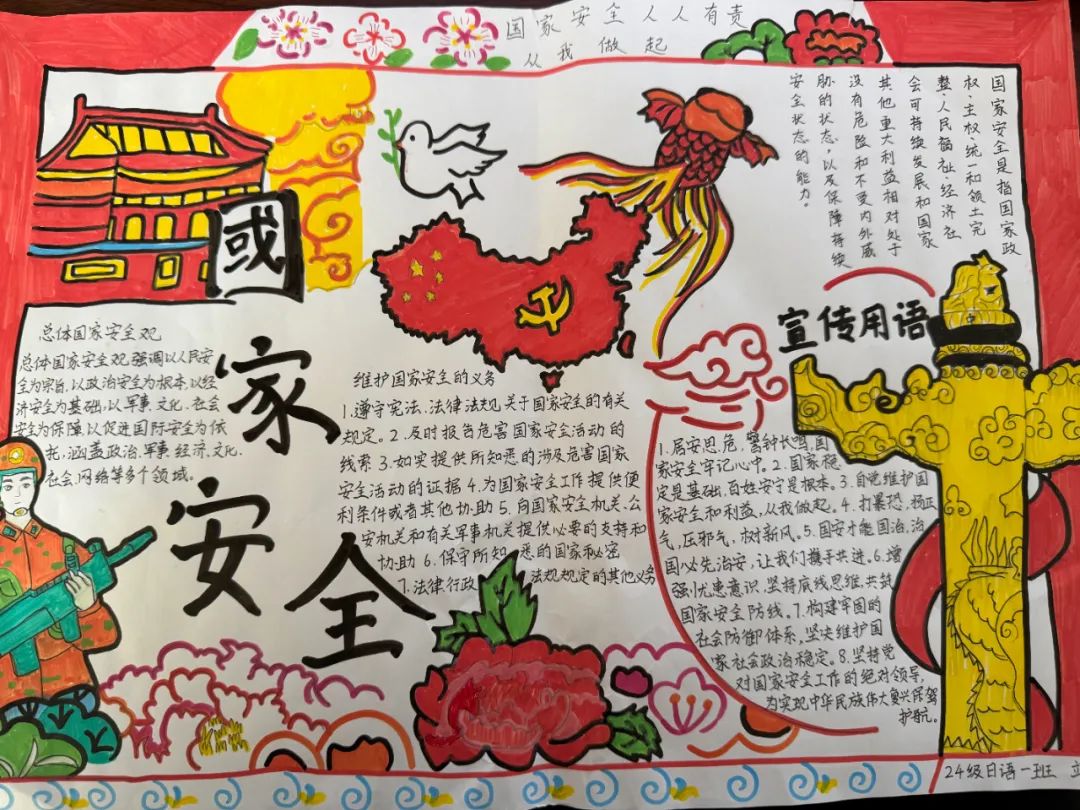 国家安全人人有责
从我做起
国家安全是指国家政
权、主权、统一和领土完
整、人民福祉、经济社
会可持续发展和国家
其他重大利益相对处于
没有危险和不受内外威
胁的状态，以及保障持续
安全状态的能力。
國
家
安
全
总体国家安全观
总体国家安全观强调以人民安
全为宗旨，以政治安全为根本，以经
济安全为基础，以军事、文化、社会
安全为保障，以促进国际安全为依
托，涵盖政治、军事、经济、文化、
社会、网络等多个领域。
维护国家安全的义务
1.遵守宪法、法律法规关于国家安全的有关
规定。2.及时报告危害国家安全活动的
线索 3.如实提供所知悉的涉及危害国家
安全活动的证据 4.为国家安全工作提供便
利条件或者其他协助 5.向国家安全机关、公
安机关和有关军事机关提供必要的支持和
协助 6.保守所知悉的国家秘密
7.法律行政法规规定的其他义务
宣传用语
1.居安思危，警钟长鸣，国
家安全牢记心中。2.国家稳
定是基础，百姓安宁是根本。3.自觉维护国
家安全和利益，从我做起。4.打暴恐，扬正
气，压邪气，树新风。5.国安才能国治，治
国必先治安，让我们携手共进。6.增
强忧患意识，坚持底线思维，共筑
国家安全防线。7.构建牢固的
社会防御体系，坚决维护国
家社会政治稳定。8.坚持党
对国家安全工作的绝对领导，
为实现中华民族伟大复兴保驾
护航。
24级日语一班